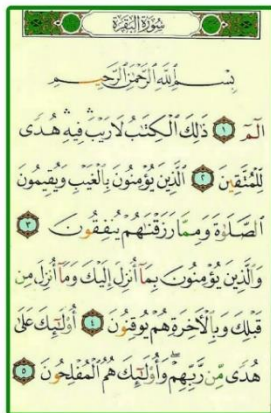 سُورَةُ الْبَقَرَةِ
بِسْمِ اللَّهِ الرَّحْمَٰنِ الرَّحِيمِ
الٓمٓ ۝١ ذَٰلِكَ الْكِتَٰبُ لَا رَيْبَ ۛ فِيهِ ۛ هُدًى
لِّلْمُتَّقِينَ ۝٢ الَّذِينَ يُؤْمِنُونَ بِالْغَيْبِ وَيُقِيمُونَ
الصَّلَوٰةَ وَمِمَّا رَزَقْنَٰهُمْ يُنفِقُونَ ۝٣
وَالَّذِينَ يُؤْمِنُونَ بِمَآ أُنزِلَ إِلَيْكَ وَمَآ أُنزِلَ مِن
قَبْلِكَ وَبِالْأَخِرَةِ هُمْ يُوقِنُونَ ۝٤ أُو۟لَٰٓئِكَ عَلَىٰ
هُدًى مِّن رَّبِّهِمْ ۖ وَأُو۟لَٰٓئِكَ هُمُ الْمُفْلِحُونَ ۝٥